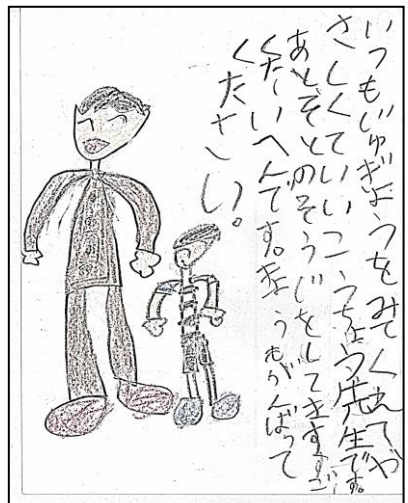 いつもじゅぎょうをみてくれてや
さしくていいこうちょう先生です。
あとそとのそうじをしてますすご
くたいへんです。きょうもがんばって
ください。